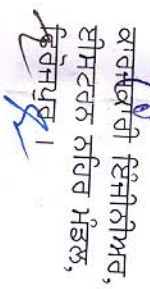 ਕਾਰਜਕਾਰੀ ਇੰਜੀਨੀਅਰ,
ਈਸਟਰਨ ਨਹਿਰ ਮੰਡਲ,
ਫਿਰੋਜ਼ਪੁਰ।